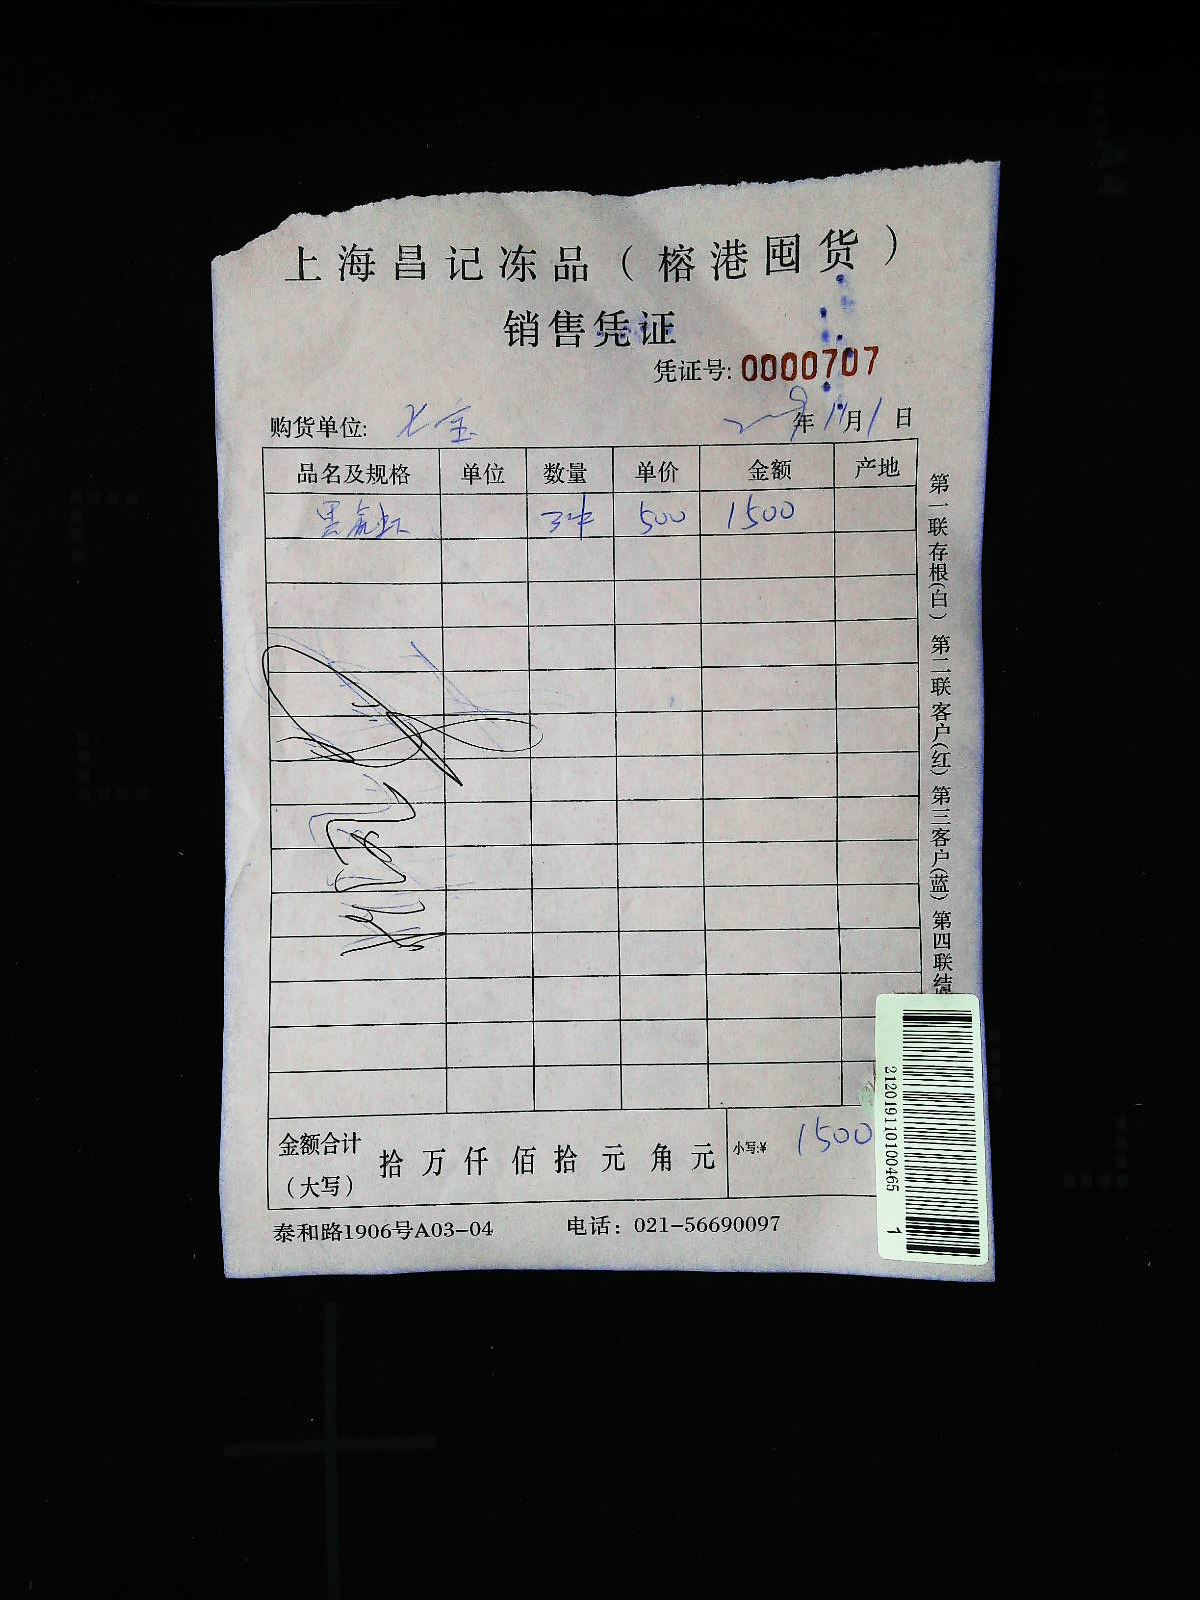 上海昌记冻品（榕港囤货）
销售凭证
凭证号: 0000707
购货单位: 七宝 年 11 月 1 日
品名及规格 单位 数量 单价 金额 产地
黑虎虾 3件 500 1500
金额合计（大写） 拾 万 仟 佰 拾 元 角 元 小写:¥ 1500
泰和路1906号A03-04 电话：021-56690097
第一联存根(白) 第二联客户(红) 第三客户(蓝) 第四联结
212019110100465 1